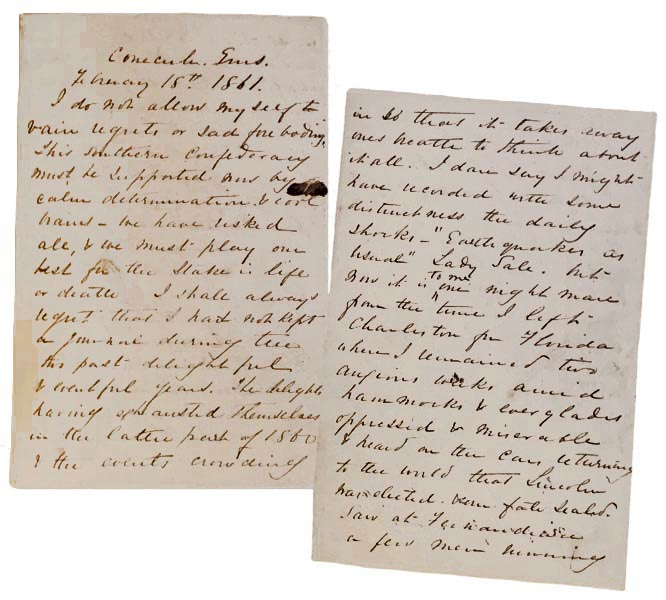 Conecuh. Ems.
February 18th 1861.
I do not allow myself
vain regrets or sad foreboding.
This southern Confederacy
must be supported now by
calm determination & cool
brains - we have risked
all, & we must play our
best for the stake is life
or death I shall always
regret that I had not kept
a journal during the
this past delightful
& eventful years. The delights
having exhausted themselves
in the latter part of 1860
& the events crowding
in so that it takes away
ones breath to think about
it all. I dare say I might
have recorded with some
distinctness the daily
shocks - "Earthquakes as
usual" Lady Sale. but
now it is to me one night mare
from the time I left
Charleston for Florida
where I remained two
anxious weeks amid
hammocks & everglades
oppressed & miserable
& heard on the cars returning
to the world that Lincoln
was elected. & our fate sealed.
Saw at Fernandina
a few men running